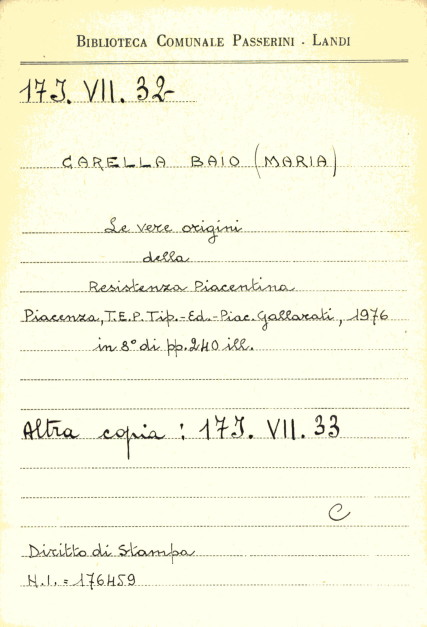 BIBLIOTECA COMUNALE PASSERINI - LANDI
17J. VII. 32
CARELLA BAIO (MARIA)
Le vere origini
della
Resistenza Piacentina
Piacenza, T.E.P. Tip.-Ed.-Piac. Gallarati, 1976
in 8° di pp. 240 ill.
Altra copia : 17J. VII. 33
C
Diritto di Stampa
N.I. = 176459